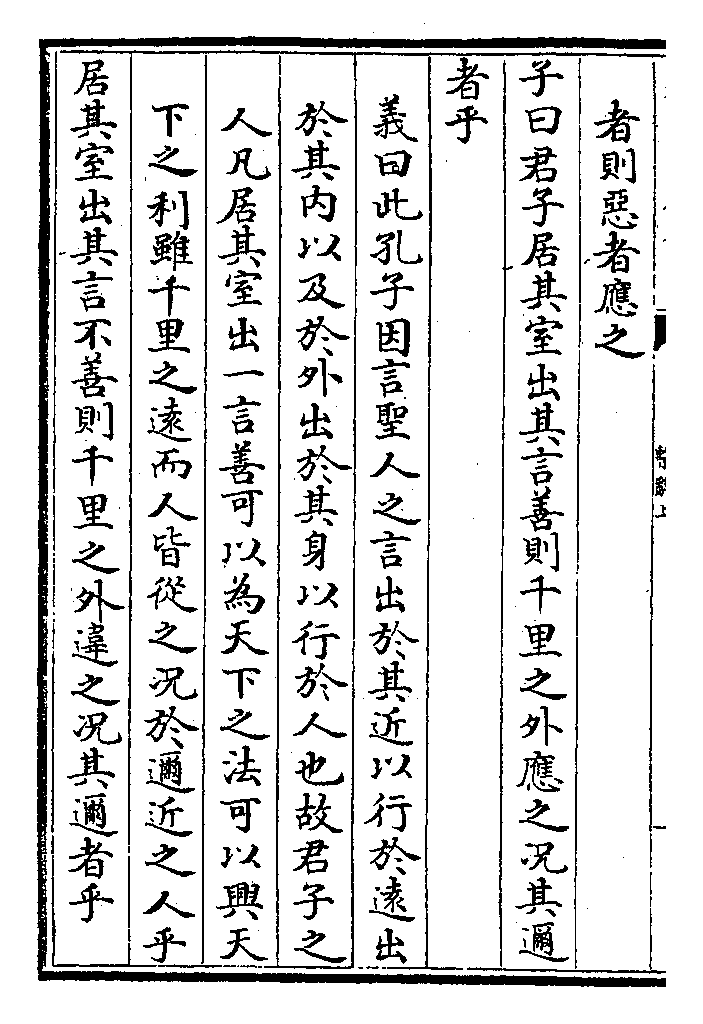 者則惡者應之
子曰君子居其室出其言善則千里之外應之况其邇
者乎
義曰此孔子因言聖人之言出於其近以行於遠出
於其内以及於外出於其身以行於人也故君子之
人凡居其室出一言善可以為天下之法可以興天
下之利雖千里之遠而人皆從之况於邇近之人乎
居其室出其言不善則千里之外違之况其邇者乎